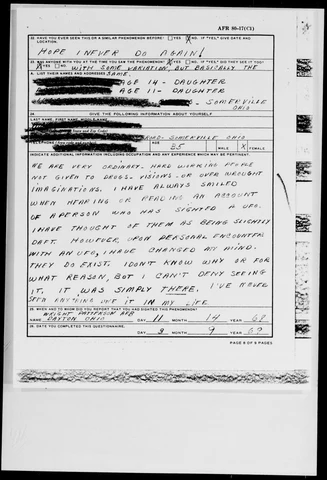 AFR 80-17(C1)
22. HAVE YOU EVER SEEN THIS OR A SIMILAR PHENOMENON BEFORE? YES NO X IF "YES" GIVE DATE AND
LOCATION.
HOPE I NEVER DO AGAIN!
WAS ANYONE WITH YOU AT THE TIME YOU SAW THE PHENOMENON? X YES NO IF "YES" DID THEY SEE IT TOO?
X YES WITH SOME VARIATION, BUT BASICALLY THE
LIST THEIR NAMES AND ADDRESSES SAME.
AGE 14 - DAUGHTER
AGE 11 - DAUGHTER
SOMERVILLE
OHIO
24. GIVE THE FOLLOWING INFORMATION ABOUT YOURSELF
LAST NAME, FIRST NAME, MIDDLE NAME
ROAD. SOMERVILLE OHIO
AGE 35 MALE X FEMALE
INDICATE ADDITIONAL INFORMATION INCLUDING OCCUPATION AND ANY EXPERIENCE WHICH MAY BE PERTINENT.
WE ARE VERY ORDINARY - HARD WORKING PEOPLE
NOT GIVEN TO DRUGS - VISIONS - OR OVER WROUGHT
IMAGINATIONS. I HAVE ALWAYS SMILED
WHEN HEARING OR READING AN ACCOUNT
OF A PERSON WHO HAS SIGHTED A UFO.
I HAVE THOUGHT OF THEM AS BEING SLIGHTLY
DAFT. HOWEVER, UPON PERSONAL ENCOUNTER
WITH AN UFO, I HAVE CHANGED MY MIND.
THEY DO EXIST. I DON'T KNOW WHY OR FOR
WHAT REASON, BUT I CAN'T DENY SEEING
IT. IT WAS SIMPLY THERE. I'VE NEVER
SEEN ANYTHING LIKE IT IN MY LIFE
25. WHEN AND TO WHOM DID YOU REPORT THAT YOU HAD SIGHTED THIS PHENOMENON?
WRIGHT PATTERSON AFB
NAME DAYTON OHIO DAY 11 MONTH 14 YEAR 69
26. DATE YOU COMPLETED THIS QUESTIONNAIRE. DAY 3 MONTH 9 YEAR 69